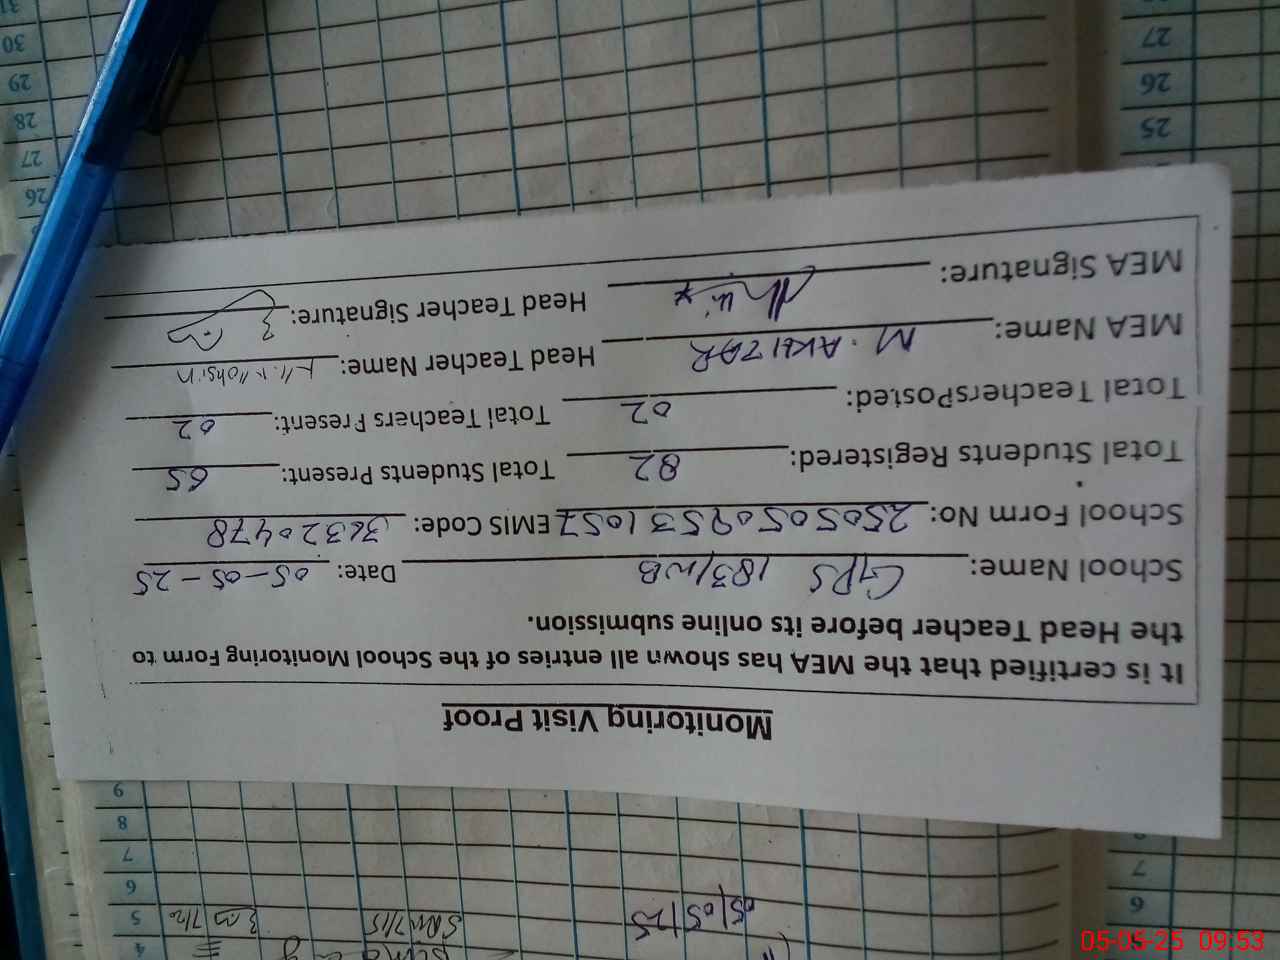 Monitoring Visit Proof
It is certified that the MEA has shown all entries of the School Monitoring Form to
the Head Teacher before its online submission.
School Name: GPS 183/WB Date: 05-05-25
School Form No: 25050509531057 EMIS Code: 36320478
Total Students Registered: 82 Total Students Present: 65
Total TeachersPosted: 02 Total Teachers Present: 02
MEA Name: M. AKHTAR Head Teacher Name: Mohsin
MEA Signature: Head Teacher Signature:
4
5
6
7
8
9
05/05/25
6
7
25
26
27
26
27
28
29
30
31
05-05-25 09:53